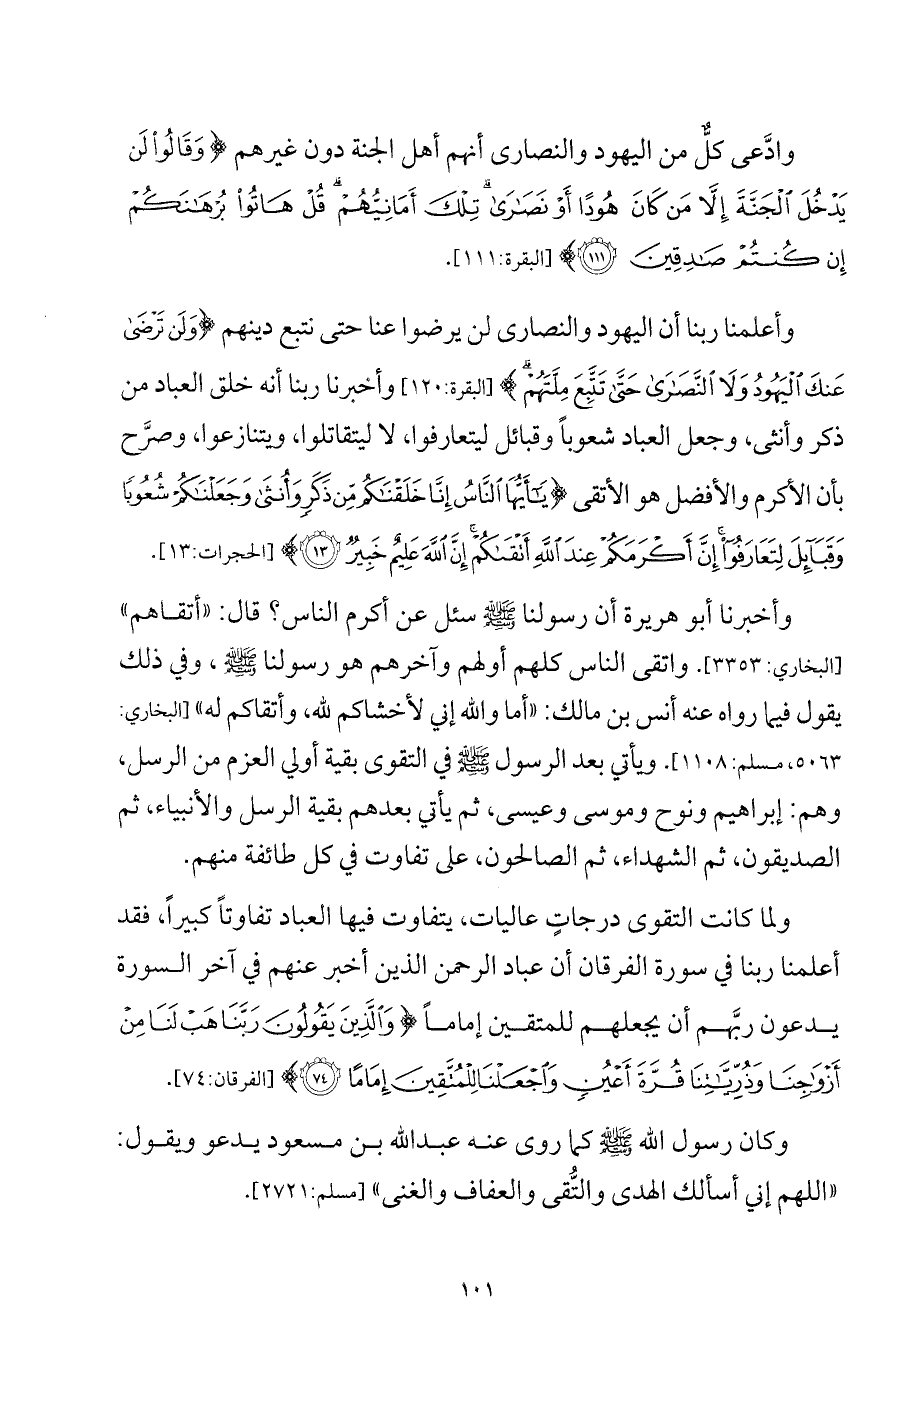 وادَّعى كلٌّ من اليهود والنصارى أنهم أهل الجنة دون غيرهم ﴿ وَقَالُوا۟ لَن
يَدْخُلَ ٱلْجَنَّةَ إِلَّا مَن كَانَ هُودًا أَوْ نَصَٰرَىٰ ۗ تِلْكَ أَمَانِيُّهُمْ ۗ قُلْ هَاتُوا۟ بُرْهَٰنَكُمْ
إِن كُنتُمْ صَٰدِقِينَ ﴿١١١﴾ ﴾ [البقرة:١١١].
وأعلمنا ربنا أن اليهود والنصارى لن يرضوا عنا حتى نتبع دينهم ﴿وَلَن تَرْضَىٰ
عَنكَ ٱلْيَهُودُ وَلَا ٱلنَّصَٰرَىٰ حَتَّىٰ تَتَّبِعَ مِلَّتَهُمْ ۗ ﴾ [البقرة:١٢٠] وأخبرنا ربنا أنه خلق العباد من
ذكر وأنثى، وجعل العباد شعوباً وقبائل ليتعارفوا، لا ليتقاتلوا، ويتنازعوا، وصرَّح
بأن الأكرم والأفضل هو الأتقى ﴿ يَٰٓأَيُّهَا ٱلنَّاسُ إِنَّا خَلَقْنَٰكُم مِّن ذَكَرٍ وَأُنثَىٰ وَجَعَلْنَٰكُمْ شُعُوبًا
وَقَبَآئِلَ لِتَعَارَفُوٓا۟ ۚ إِنَّ أَكْرَمَكُمْ عِندَ ٱللَّهِ أَتْقَىٰكُمْ ۚ إِنَّ ٱللَّهَ عَلِيمٌ خَبِيرٌ ﴿١٣﴾ ﴾ [الحجرات:١٣].
وأخبرنا أبو هريرة أن رسولنا ﷺ سئل عن أكرم الناس؟ قال: «أتقاهم»
[البخاري: ٣٣٥٣]. واتقى الناس كلهم أولهم وآخرهم هو رسولنا ﷺ ، وفي ذلك
يقول فيما رواه عنه أنس بن مالك: «أما والله إني لأخشاكم لله، وأتقاكم له» [البخاري:
٥٠٦٣، مسلم: ١١٠٨]. ويأتي بعد الرسول ﷺ في التقوى بقية أولي العزم من الرسل،
وهم: إبراهيم ونوح وموسى وعيسى، ثم يأتي بعدهم بقية الرسل والأنبياء، ثم
الصديقون، ثم الشهداء، ثم الصالحون، على تفاوت في كل طائفة منهم.
ولما كانت التقوى درجاتٍ عاليات، يتفاوت فيها العباد تفاوتاً كبيراً، فقد
أعلمنا ربنا في سورة الفرقان أن عباد الرحمن الذين أخبر عنهم في آخر السورة
يدعون ربَّهم أن يجعلهم للمتقين إماماً ﴿ وَٱلَّذِينَ يَقُولُونَ رَبَّنَا هَبْ لَنَا مِنْ
أَزْوَٰجِنَا وَذُرِّيَّٰتِنَا قُرَّةَ أَعْيُنٍ وَٱجْعَلْنَا لِلْمُتَّقِينَ إِمَامًا ﴿٧٤﴾ ﴾ [الفرقان:٧٤].
وكان رسول الله ﷺ كما روى عنه عبدالله بن مسعود يدعو ويقول:
«اللهم إني أسألك الهدى والتُّقى والعفاف والغنى» [مسلم:٢٧٢١].
١٠١